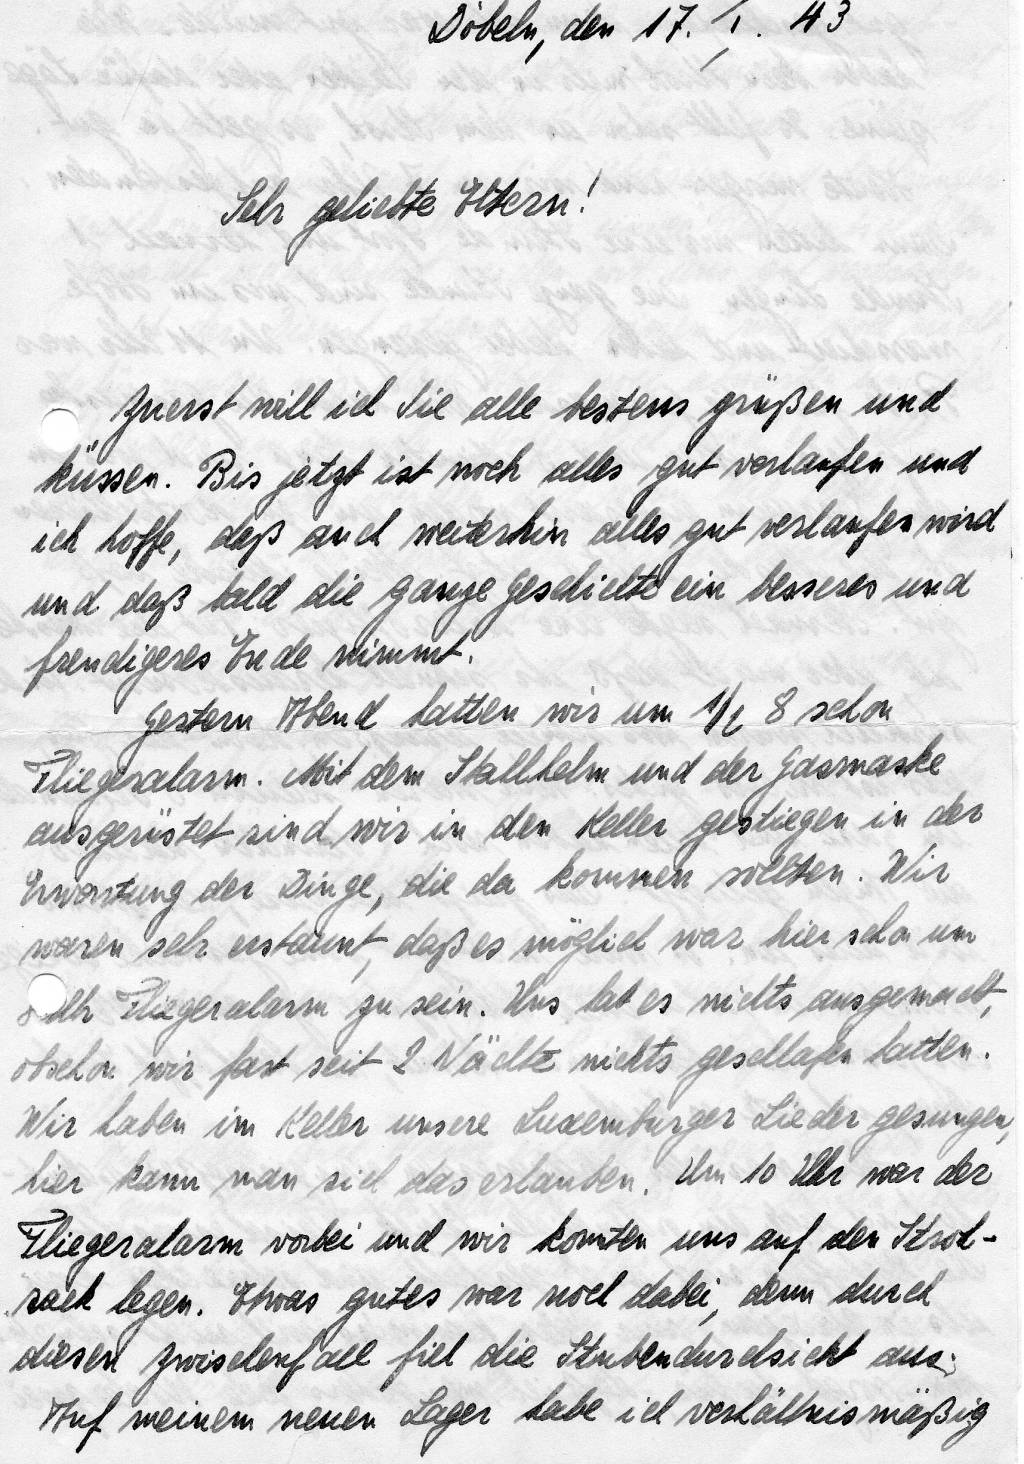 Döbeln, den 17. / I. 43
Sehr geliebte Eltern!
Zuerst will ich Sie alle bestens grüßen und
küssen. Bis jetzt ist noch alles gut verlaufen und
ich hoffe, daß auch weiterhin alles gut verlaufen wird
und daß bald die ganze Geschichte ein besseres und
freudigeres Ende nimmt.
Gestern Abend hatten wir um 1/2 8 schon
Fliegeralarm. Mit dem Stahlhelm und der Gasmaske
ausgerüstet sind wir in den Keller gestiegen in der
Erwartung der Dinge, die da kommen sollten. Wir
waren sehr erstaunt, daß es möglich war hier schon um
8 Uhr Fliegeralarm zu sein. Uns hat es nichts ausgemacht,
obschon wir fast seit 2 Nächte nichts geschlafen hatten.
Wir haben im Keller unsere Luxemburger Lieder gesungen,
hier kann man sich das erlauben. Um 10 Uhr war der
Fliegeralarm vorbei und wir konnten uns auf den Stroh-
sack legen. Etwas gutes war noch dabei, denn durch
diesen Zwischenfall fiel die Stubendurchsicht aus.
Auf meinem neuen Lager habe ich verhältnismäßig